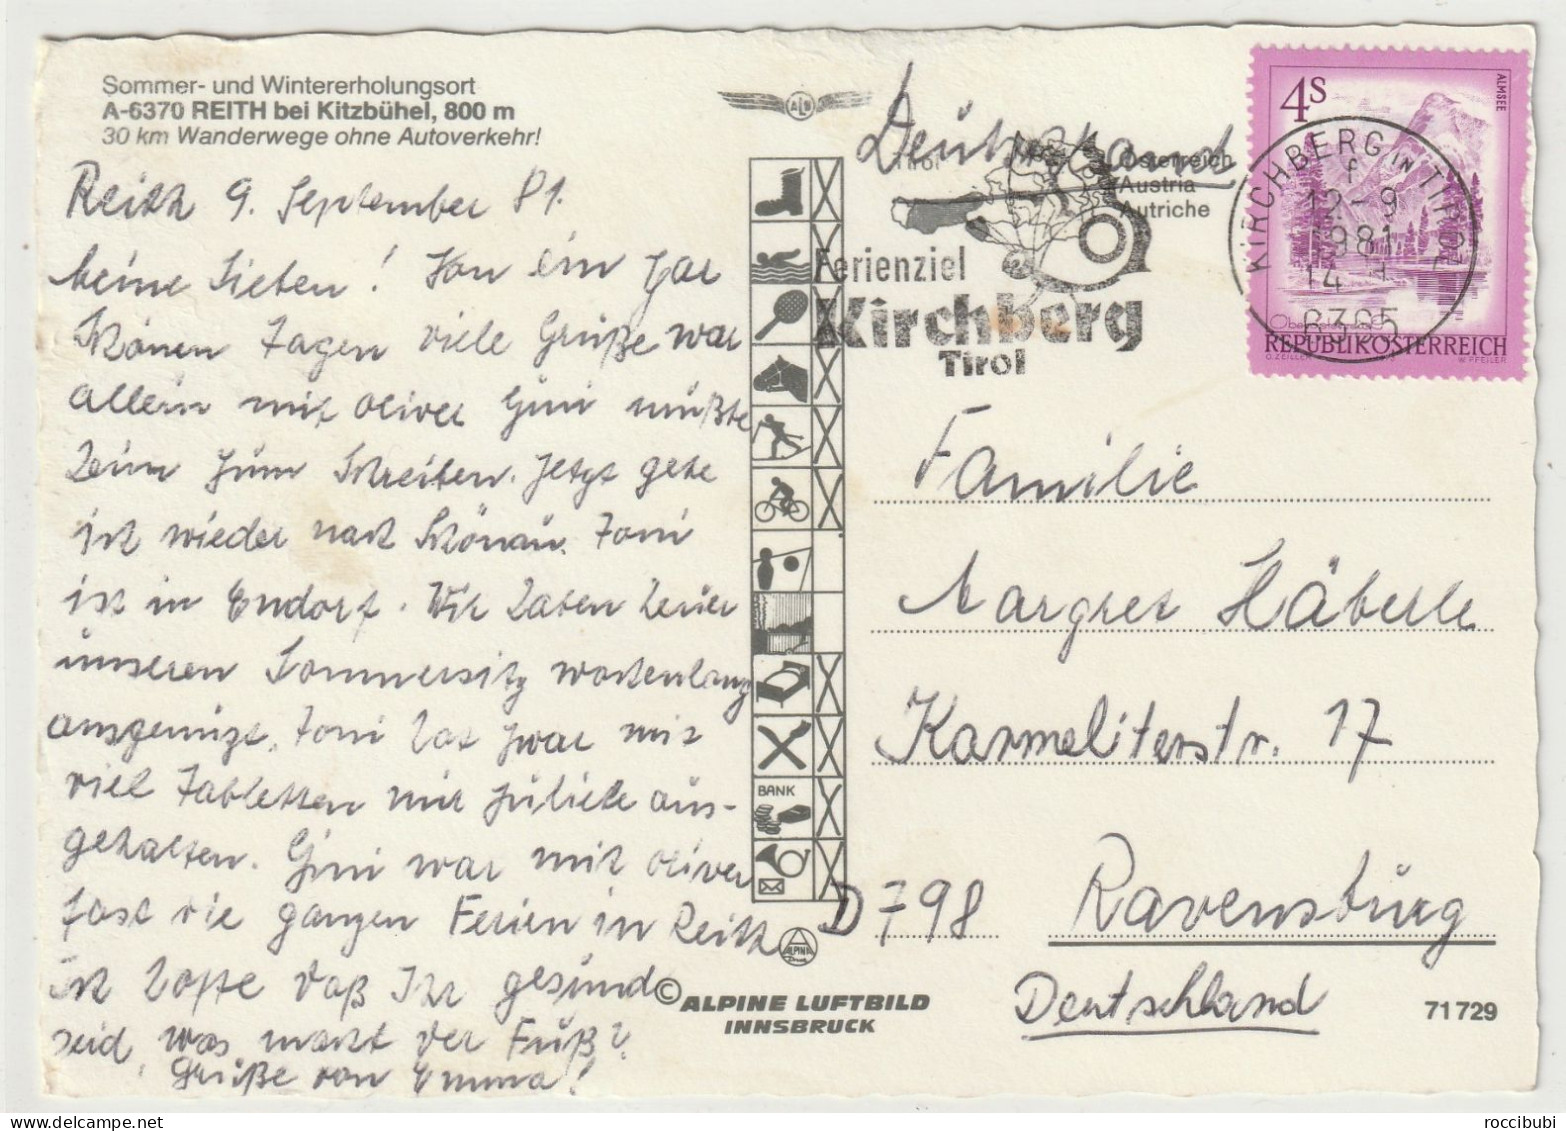 Sommer- und Wintererholungsort
A-6370 REITH bei Kitzbühel, 800 m
30 km Wanderwege ohne Autoverkehr!
Reith 9. September 81.
Meine Lieben! Von ein gar
schönen Tagen viele Grüße war
allein mit Oliver Gini mußte
heim zum Schreiben. Jetzt gehe
ich wieder nach Schönau. Toni
ist in Endorf. Wir haben heuer
unseren Sommersitz wochenlang
ausgenüzt. Toni hat zwar mit
viel Tabletten mir zuliebe aus-
gehalten. Gini war mit Oliver
fast die ganzen Ferien in Reith
Ich hoffe daß Ihr gesund
seid, was macht der Fuß?
Grüße von Emma!
ALB
Deutschland
Tirol
Österreich
Austria
Autriche
Ferienziel
Kirchberg
Tirol
4S
ALMSEE
KIRCHBERG IN TIROL
f
12-9
1981 14
6365
REPUBLIK ÖSTERREICH
O. ZEILLER
W. PFEILER
BANK
Familie
Margret Häberle
Karmeliterstr. 17
D 798 Ravensburg
Deutschland
ALPINA
Druck
© ALPINE LUFTBILD
INNSBRUCK
71729
roccibubi